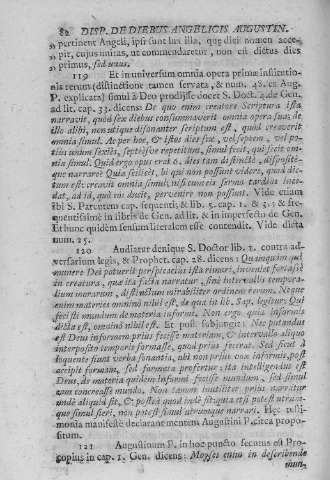 82 DISP. DE DIEBUS ANGELICIS AUGUSTIN.
„ pertinent Angeli, ipsi sunt lux illa, quæ diei nomen acce-
„ pit, cujus unitas, ut commendaretur, non est dictus dies
„ primus, sed unus.
119 Et in universum omnia opera primæ institutio-
nis rerum (distinctione tamen servata, & num. 48. ex Aug.
P. explicata) simul à Deo prodiisse docet S. Doct. 4. de Gen.
ad lit. cap. 33. dicens: De quo enim creatore Scriptura ista
narravit, quòd sex diebus consummaverit omnia opera sua; de
illo alibi, non utique dissonanter scriptum est, quòd creaverit
omnia simul. Ac per hoc, & istos dies sex, vel septem, vel po-
tius unum sexies, septiesve repetitum, simul fecit, qui fecit om-
nia simul. Quid ergo opus erat 6. dies tam distinctè, dispositè-
que narrare? Quia scilicet, hi qui non possunt videre, quod dic-
tum est: creavit omnia simul, nisi cum eis sermo tardiùs ince-
dat, ad id, quò eos ducit, pervenire non possunt. Vide etiam
ibi S. Parentem cap. sequenti, & lib. 5. cap. 1. & 3. & fre-
quentissimè in libris de Gen. ad lit. & in imperfecto de Gen.
Et hunc quidem sensum literalem esse contendit. Vide dicta
num. 25.
120 Audiatur denique S. Doctor lib. 1. contra ad-
versarium legis, & Prophet. cap. 28. dicens: Quamquam qui
munere Dei potuerit perspicaciùs ista rimari, inveniet fortasse
in creatura, quæ ita facta narratur, sine intervallo tempora-
lium morarum, distinctum mirabiliter ordinem rerum. Neque
enim materies omnino nihil est, de qua in lib. Sap. legitur: Qui
fecisti mundum de materia informi. Non ergo, quia informis
dicta est, omnino nihil est. Et post subjungit: Nec putandus
est Deus informem prius fecisse materiam, & intervallo aliquo
interposito temporis formasse, quod prius fecerat. Sed sicut à
loquente fiunt verba sonantia, ubi non prius vox informis, post
accipit formam, sed formata profertur; ita intelligendus est
Deus, de materia quidem informi fecisse mundum, sed simul
eam concreasse mundo. Non tamen inutiliter prius narratur
unde aliquid fit, & postea quod inde fit; quia etsi potest utrum-
que simul fieri, non potest simul utrumque narrari. Hæc testi-
monia manifestè declarant mentem Augustini P. circa propo-
situm.
121 Augustinum P. in hoc puncto secutus est Pro-
copius in cap. 1. Gen. dicens: Moyses enim in describendo
mun-